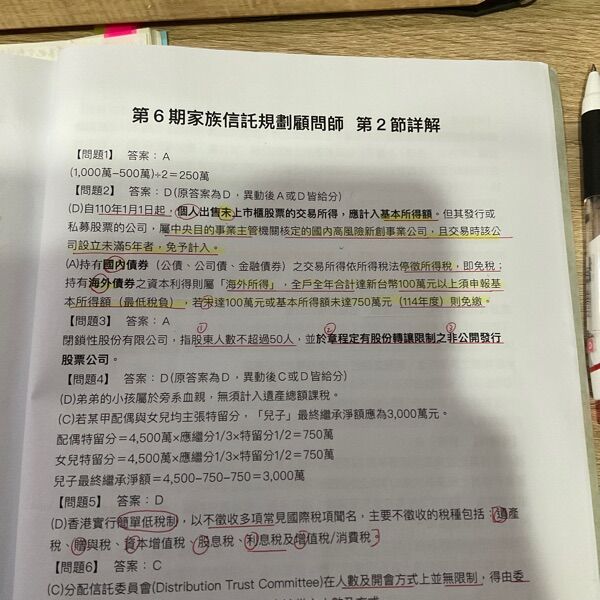 第6期家族信託規劃顧問師 第2節詳解
【問題1】 答案：A
(1,000萬−500萬)÷2＝250萬
【問題2】 答案：D(原答案為D，異動後A或D皆給分)
(D)自110年1月1日起，個人出售未上市櫃股票的交易所得，應計入基本所得額。但其發行或
私募股票的公司，屬中央目的事業主管機關核定的國內高風險新創事業公司，且交易時該公
司設立未滿5年者，免予計入。
(A)持有國內債券（公債、公司債、金融債券）之交易所得依所得稅法停徵所得稅，即免稅；
持有海外債券之資本利得則屬「海外所得」，全戶全年合計達新台幣100萬元以上須申報基
本所得額（最低稅負），若未達100萬元或基本所得額未達750萬元（114年度）則免繳。
【問題3】 答案：A
① ② ③
閉鎖性股份有限公司，指股東人數不超過50人，並於章程定有股份轉讓限制之非公開發行
股票公司。
【問題4】 答案：D(原答案為D，異動後C或D皆給分)
(D)弟弟的小孩屬於旁系血親，無須計入遺產總額課稅。
(C)若某甲配偶與女兒均主張特留分，「兒子」最終繼承淨額應為3,000萬元。
配偶特留分＝4,500萬×應繼分1/3×特留分1/2＝750萬
女兒特留分＝4,500萬×應繼分1/3×特留分1/2＝750萬
兒子最終繼承淨額＝4,500−750−750＝3,000萬
【問題5】 答案：D
(D)香港實行簡單低稅制，以不徵收多項常見國際稅項聞名，主要不徵收的稅種包括：遺產
稅、贈與稅、資本增值稅、股息稅、利息稅及增值稅/消費稅。
【問題6】 答案：C
(C)分配信託委員會(Distribution Trust Committee)在人數及開會方式上並無限制，得由委